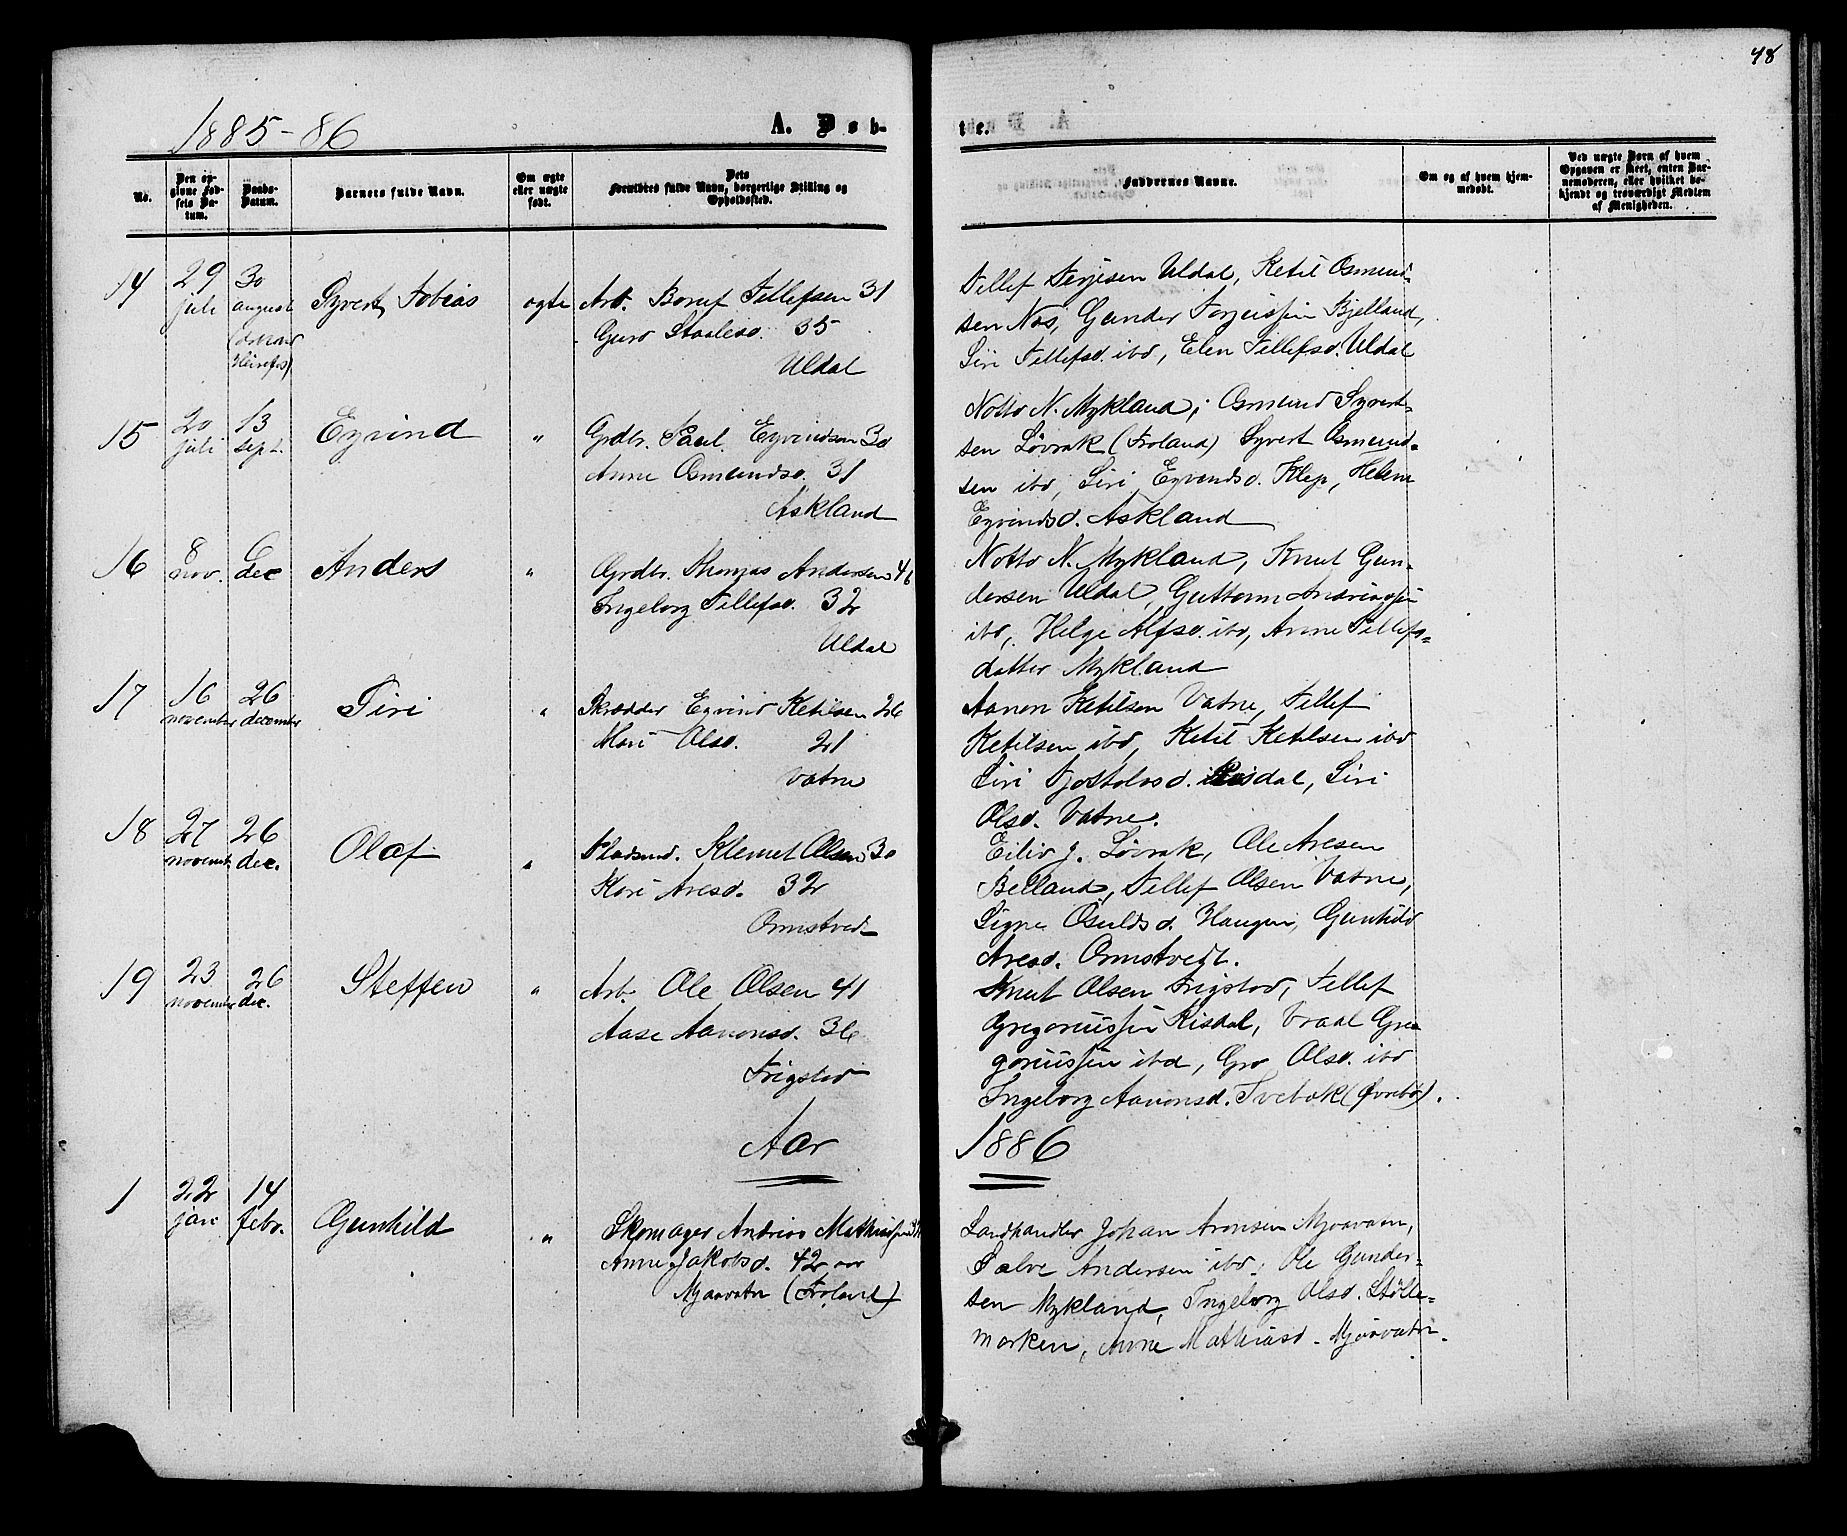 48
1885-86
A. Døb-
te.
No.
Den op-
givne Fød-
sels Da-
tum.
Daabs-
Datum.
Barnets fulde Navn.
Om ægte
eller uægte
født.
Dets
Forældres fulde Navn, borgerlige Stilling og
Opholdssted.
Faddernes Navne.
Om og af hvem hjem-
medøbt.
Ved uægte Børn af hvem
Opgaven er skeet, enten Bar-
nemoderen, eller hvilket be-
kjendt og troværdigt Medlem
af Menigheden.
14
29
juli
30
august
Syvert Tobias
ægte
Arb. Tellefsen 31
Guro Staalesd. 35
Uldal
Tellef Terjesen Uldal, Ketil Osmund-
sen Nœs, Gunder Torjussen Bjelland,
Siri Tellefsd. ibd, Elen Tellefsd. Uldal
15
20
juli
13
sept.
Eyvind
"
Grdbr. Paul Eyvindsen 30
Anne Osmundsd. 31
Askland
Notto N. Mykland, Osmund Syvert-
sen Løvrak (Froland) Syvert Osmund-
sen ibd, Siri Eyvendsd. Klep, Helene
Eyvindsd. Askland
16
8
nov.
6
dec
Anders
"
Grdbr. Thomas Andersen 46
Ingeborg Tellefsd. 32
Uldal
Notto N. Mykland, Knut Gun-
dersen Uldal, Guttorm
ibd, Helge Alfsd. ibd, Anne Tellefs-
datter Mykland
17
16
november
26
december
Siri
"
Skrædder Eyvind Ketilsen 26
Mari Olsd. 21
Vatne
Aanon Ketilsen Vatne, Tellef
Ketilsen ibd, Ketil Ketilsen ibd
Siri Tjostolvsd. Risdal, Siri
Olsd. Vatne.
18
27
novemb.
26
dec.
Olaf
"
Pladsmd. Klemet Olsen 30
Kari Aresd. 32
Ormstved
Eiliv J. Løvrak, Ole Aresen
Belland, Tellef Olsen Vatne,
Signe Osuldsd. Haugen, Gunhild
Aresd. Ormstvedt.
19
23
november
26
dec.
Steffen
"
Arb. Ole Olsen 41
Aase Aanonsd. 36
Frigstad
Knut Olsen Frigstad, Tellef
Gregoriussen Risdal, Vraal Gre-
goriussen ibd, Gro Olsd. ibd
Ingeborg Aanonsd. Tvebak (Øvrebø).
Aar
1886
1
22
jan
14
febr.
Gunhild
"
Skomager Andreas Mathiassen
Anne Jakobsd. 42 aar
Mjaavatn (Froland)
Landhandler Johan Aronsen Mjaavatn,
Salve Andersen ibd, Ole Gunder-
sen Mykland, Ingeborg Olsd. Støle-
marken, Anne Mathiasd. Mjaavatn.